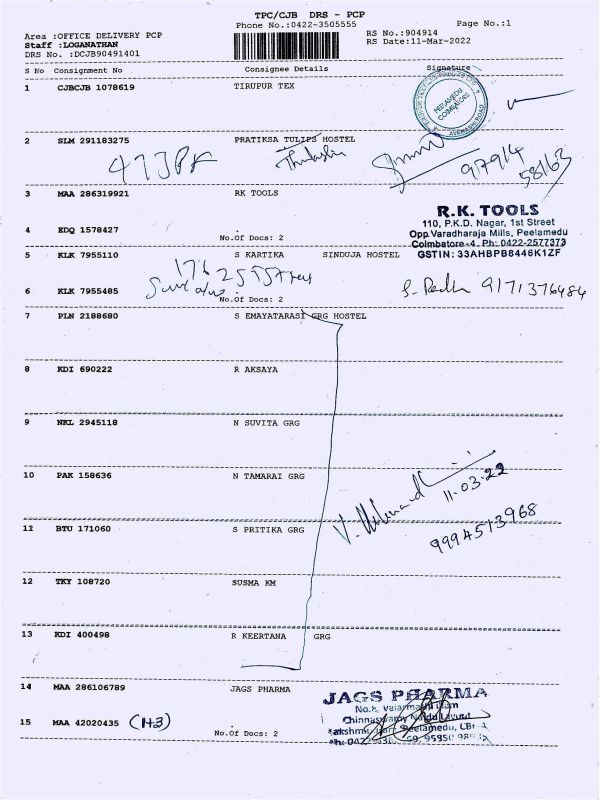 TPC/CJB DRS - PCP
Phone No.:0422-3505555
Page No.:1
Area :OFFICE DELIVERY PCP
Staff :LOGANATHAN
DRS No. :DCJB90491401
RS No.:904914
RS Date:11-Mar-2022
S No Consignment No Consignee Details Signature
1 CJBCJB 1078619 TIRUPUR TEX
PEELAMEDU
COIMBATORE
2 SLM 291183275 PRATIKSA TULIPS HOSTEL
97914
58163
3 MAA 286319921 RK TOOLS
R.K. TOOLS
110, P.K.D. Nagar, 1st Street
Opp.Varadharaja Mills, Peelamedu
Coimbatore-4. Ph: 0422-2577373
GSTIN: 33AHBPB8446K1ZF
4 EDQ 1578427
No.Of Docs: 2
5 KLK 7955110 S KARTIKA SINDUJA HOSTEL
6 KLK 7955485
No.Of Docs: 2
9171376484
7 PLN 2188680 S EMAYATARASI GRG HOSTEL
8 KDI 690222 R AKSAYA
9 NKL 2945118 N SUVITA GRG
10 PAK 158636 N TAMARAI GRG
11.03.22
11 BTU 171060 S PRITIKA GRG
9994513968
12 TKY 108720 SUSMA KM
13 KDI 400498 R KEERTANA GRG
14 MAA 286106789 JAGS PHARMA
JAGS PHARMA
15 MAA 42020435 (1+3)
No.Of Docs: 2